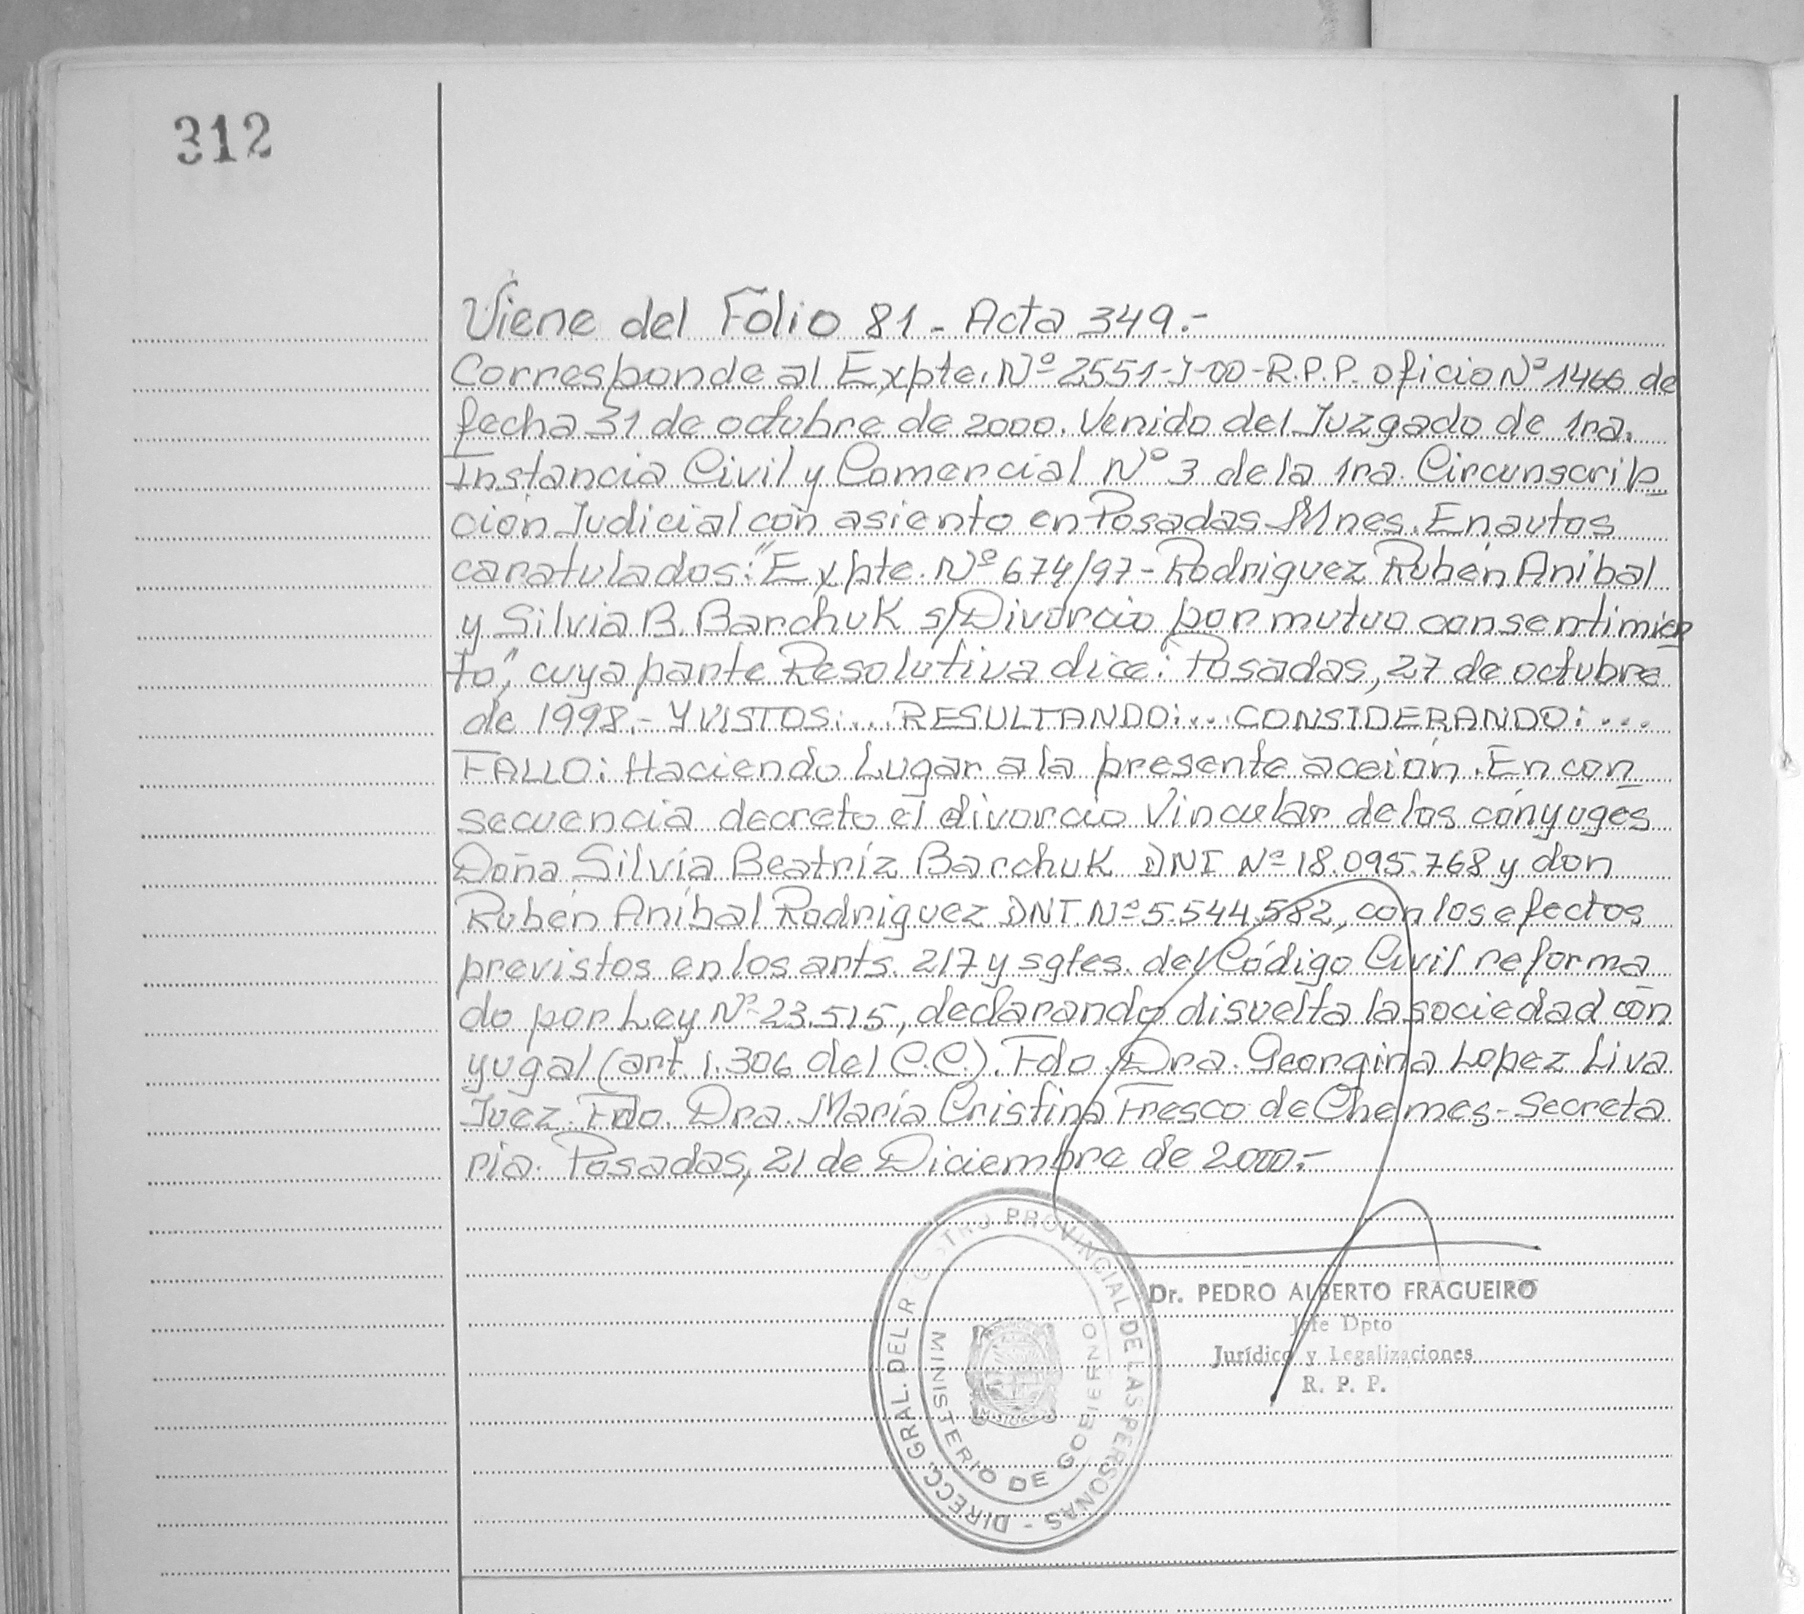 312
Viene del Folio 81 - Acta 349.-
Corresponde al Expte. Nº 2551-J-00-R.P.P. oficio Nº 1466 de
fecha 31 de octubre de 2000. Venido del Juzgado de 1ra.
Instancia Civil y Comercial Nº 3 de la 1ra. Circunscrip
ción Judicial con asiento en Posadas Mnes. En autos
caratulados: "Expte. Nº 674/97 - Rodriguez Rubén Anibal
y Silvia B. Barchuk s/Divorcio por mutuo consentimien
to", cuya parte Resolutiva dice: Posadas, 27 de octubre
de 1998.- Y VISTOS:... RESULTANDO:... CONSIDERANDO:...
FALLO: Haciendo Lugar a la presente acción. En con
secuencia decreto el divorcio Vincular de los cónyuges
Doña Silvia Beatríz Barchuk DNI Nº 18.095.768 y don
Rubén Aníbal Rodriguez DNI. Nº 5.544.582, con los efectos
previstos en los arts. 217 y sgtes. del Código Civil reforma
do por Ley Nº 23.515, declarando disuelta la sociedad con
yugal (art. 1.306 del C.C.). Fdo. Dra. Georgina Lopez Liva
Juez. Fdo. Dra. María Cristina Fresco de Chemes - Secreta
ria. Posadas, 21 de Diciembre de 2000.-
DIRECC. GRAL. DEL R GISTRO PROVINCIAL DE LAS PERSONAS -
MINISTERIO DE GOBIERNO
Dr. PEDRO ALBERTO FRAGUEIRO
Jefe Dpto
Jurídico y Legalizaciones
R. P. P.